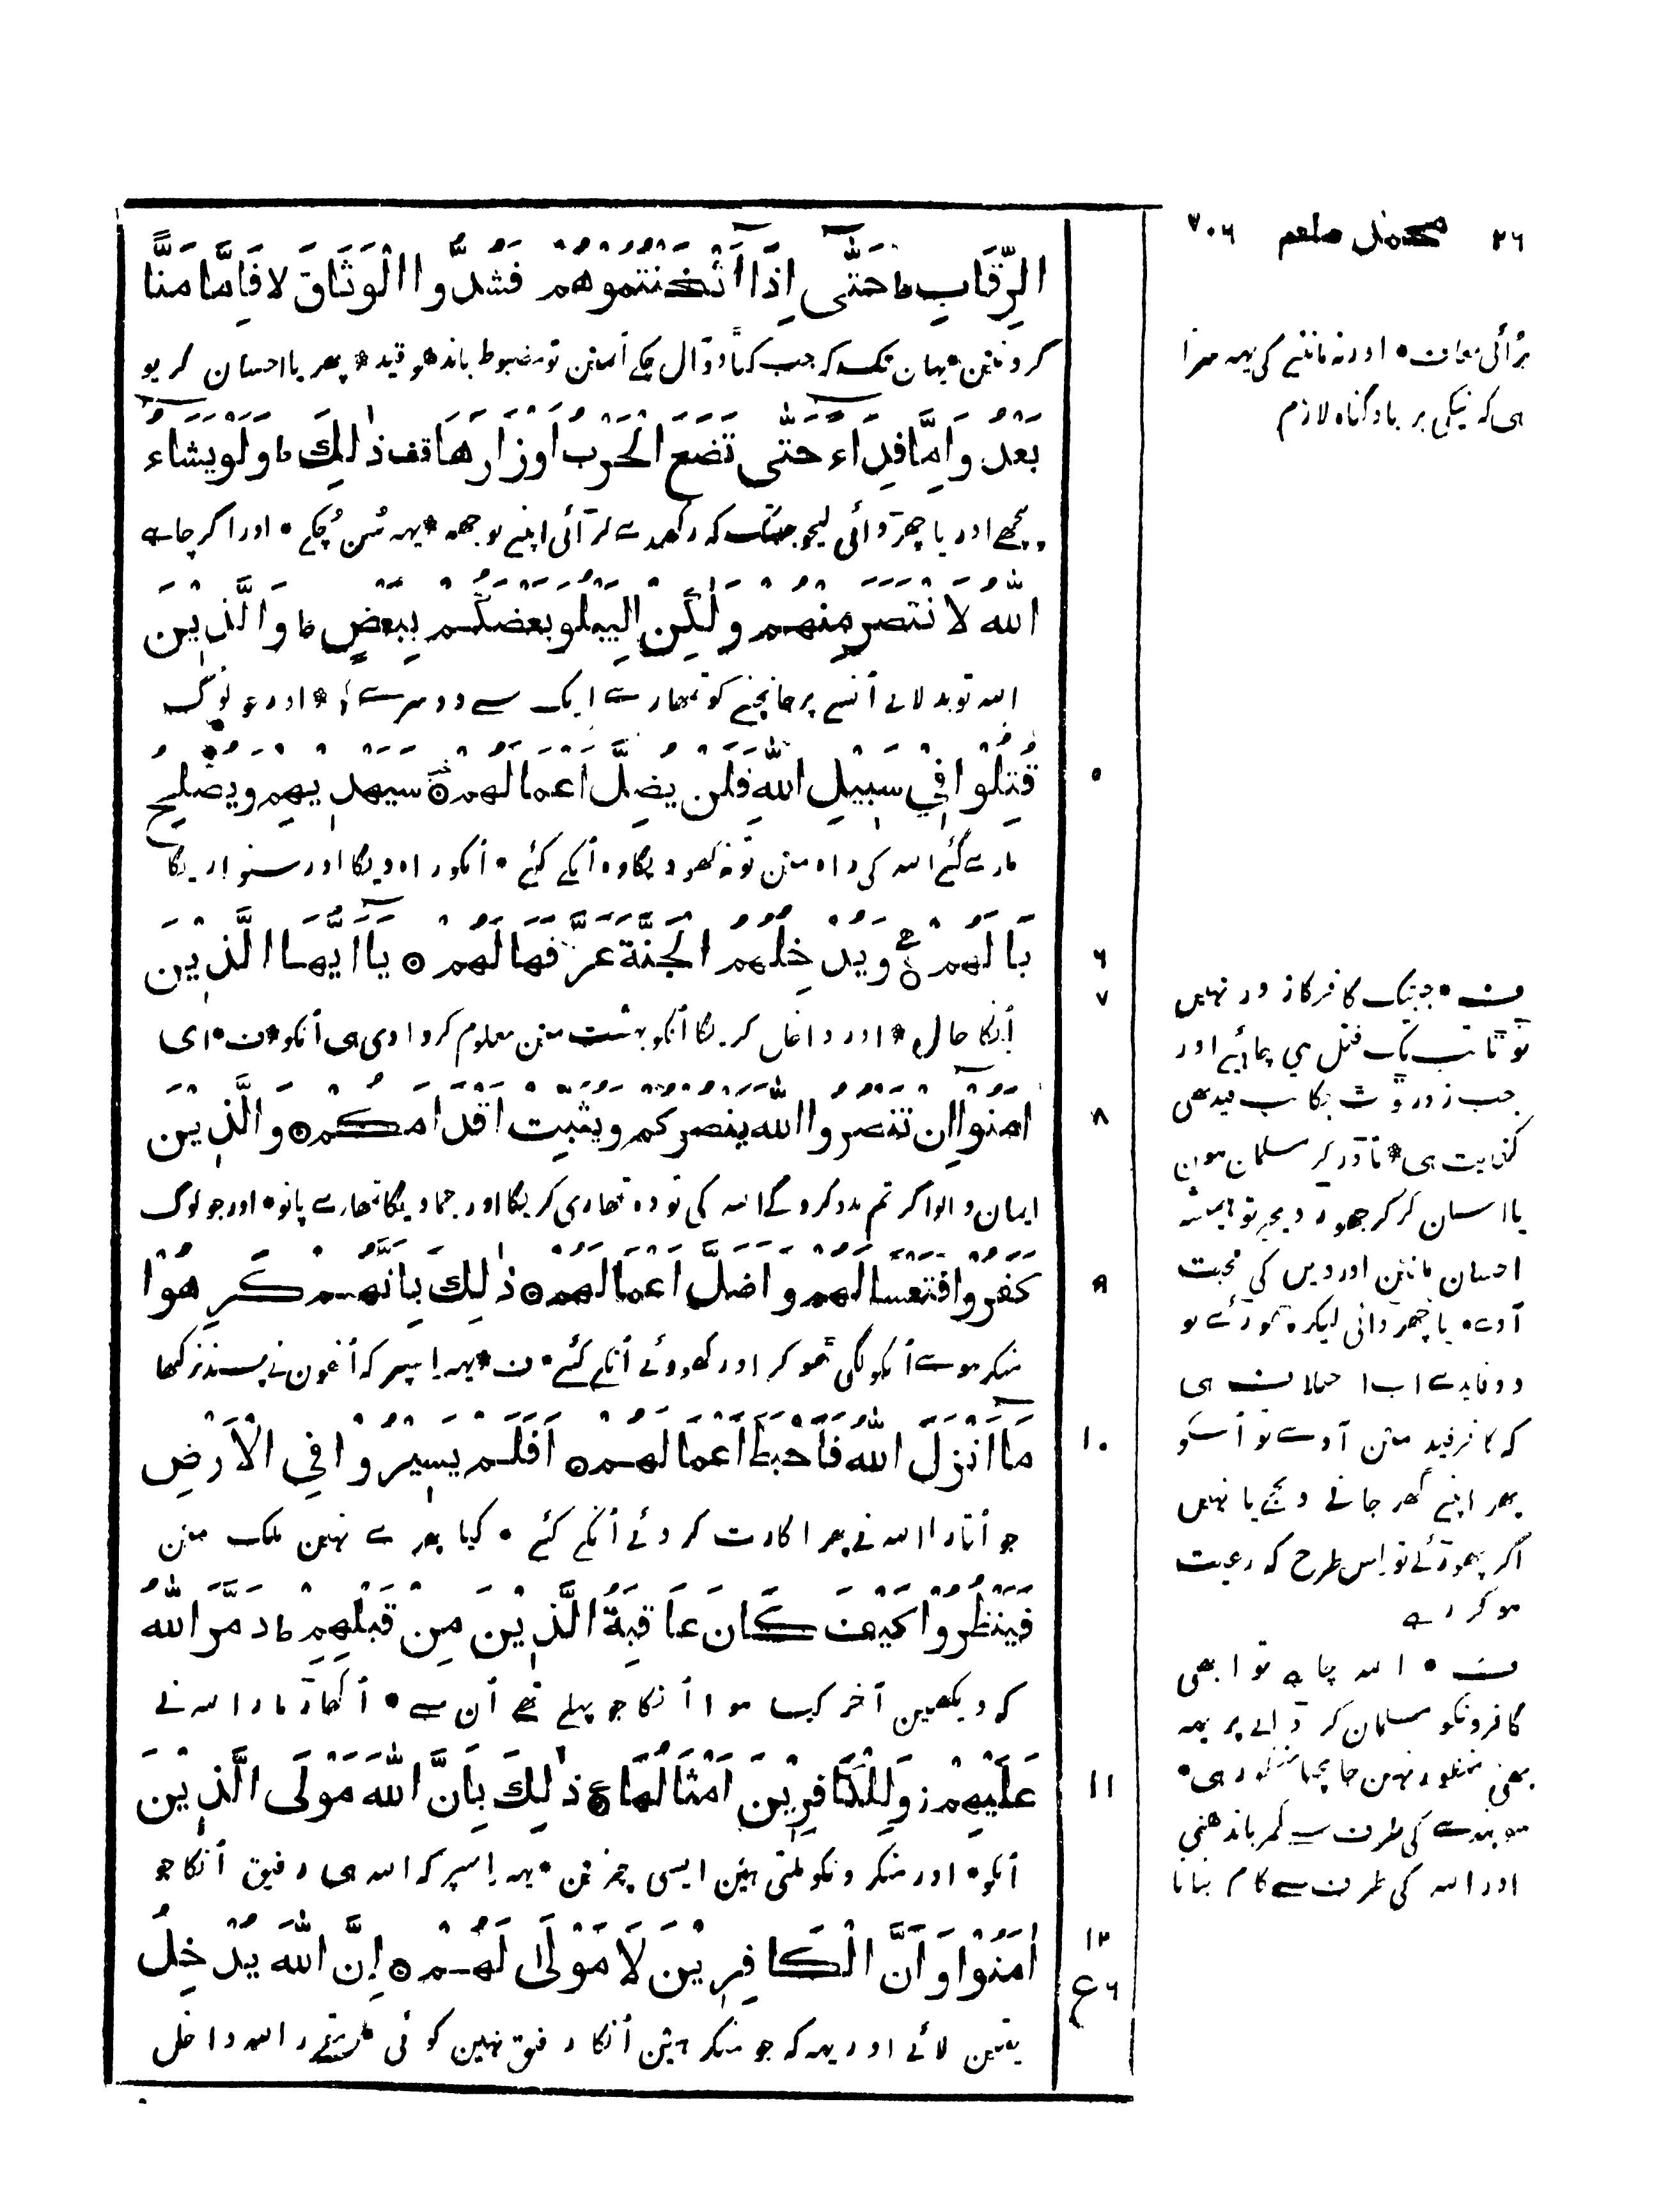 ٢٦ محمد صلعم ٧٠٦
الرِّقَابِ ط حَتّٰى اِذَا اَثْخَنْتُمُوْهُمْ فَشُدُّوا الْوَثَاقَ لا فَاِمَّا مَنًّا
گردنین * یہان تک کہ جب کٹاو ڈال چکے اُنمین تو مضبوط باندھو قید * پھر یا احسان کریو
بَعْدُ وَاِمَّا فِدَاءً حَتّٰى تَضَعَ الْحَرْبُ اَوْزَارَهَا قف ذٰلِكَ ط وَلَوْ يَشَاءُ
پیچھے اور یا چھڑوائی لیجو جبتک کہ رکھدے لڑائی اپنے بوجھہ * یہہ سُن چُکے * اور اگر چاہے
اللّٰهُ لَا نْتَصَرَ مِنْهُمْ وَلٰكِنْ لِيَبْلُوَ بَعْضَكُمْ بِبَعْضٍ ط وَالَّذِيْنَ
اللہ تو بدلالے اُنسے پر جانچنے کو تمھارے ایک سے دوسرے * اور جو لوگ
قُتِلُوْا فِيْ سَبِيْلِ اللّٰهِ فَلَنْ يُضِلَّ اَعْمَالَهُمْ ۝ سَيَهْدِيْهِمْ وَيُصْلِحُ
مارے گئے اللہ کی راہ مین تو نہ کھودیگا وہ اُنکے کئے * اُنکو راہ دیگا اور سنواریگا
بَالَهُمْ ۝ وَيُدْخِلُهُمُ الْجَنَّةَ عَرَّفَهَا لَهُمْ ۝ يَا اَيُّهَا الَّذِيْنَ
اُنکا حال * اور داخل کریگا اُنکو بہشت مین معلوم کروادی ہی اُنکو * ف * ای
اٰمَنُوْا اِنْ تَنْصُرُوا اللّٰهَ يَنْصُرْكُمْ وَيُثَبِّتْ اَقْدَامَكُمْ ۝ وَالَّذِيْنَ
ایمان والو اگر تم مدد کروگے اللہ کی تو وہ تمھاری کریگا اور جما دیگا تمھارے پانو * اور جو لوگ
كَفَرُوْا فَتَعْسًا لَهُمْ وَاَضَلَّ اَعْمَالَهُمْ ۝ ذٰلِكَ بِاَنَّهُمْ كَرِهُوْا
منکر ہوے اُنکو لگی ٹھوکر اور کھودئے اُنکے کئے * ف * یہہ اِسپر کہ اُنھون نے پسند نرکھا
مَا اَنْزَلَ اللّٰهُ فَاَحْبَطَ اَعْمَالَهُمْ ۝ اَفَلَمْ يَسِيْرُوْا فِي الْاَرْضِ
جو اُتارا اللہ نے پھر اکارت کردئے اُنکے کئے * کیا پھرے نہین ملک مین
فَيَنْظُرُوْا كَيْفَ كَانَ عَاقِبَةُ الَّذِيْنَ مِنْ قَبْلِهِمْ ط دَمَّرَ اللّٰهُ
کہ دیکھین آخر کیسا ہوا اُنکا جو پہلے تھے اُن سے * اُکھاڑ مارا اللہ نے
عَلَيْهِمْ ز وَلِلْكَافِرِيْنَ اَمْثَالُهَا ۝ ذٰلِكَ بِاَنَّ اللّٰهَ مَوْلَى الَّذِيْنَ
اُنکو * اور منکرونکو ملتی ہین ایسی چیزین * یہہ اِسپر کہ اللہ ہی رفیق اُنکا جو
اٰمَنُوْا وَاَنَّ الْكَافِرِيْنَ لَا مَوْلٰى لَهُمْ ۝ اِنَّ اللّٰهَ يُدْخِلُ
یقین لائے اور یہہ کہ جو منکر ہین اُنکا رفیق نہین کوئی * اللہ داخل
٥
٦
٧
٨
٩
١٠
١١
١٢
ع ٦
بُرائی معاف * اور نہ ماننے کی یہہ سزا
ہی کہ نیکی برباد گناہ لازم
ف * جبتک کافر کا زور نہین
ٹوٹا تب تک قتل ہی چاہئے اور
جب زور ٹوٹ چکا تب قید بھی
کفایت ہی * تا ڈر کر مسلمان ہون
یا احسان کر کر چھوڑ دیجے تو ہمیشہ
احسان مانین اور دین کی محبت
آوے * یا چھڑوائی لیکر چھوڑئے تو
دو فایدے اب اختلاف ہی
کہ کافر قید مین آوے تو اُسکو
پھر اپنے گھر جانے دیجے یا نہین
اگر چھوڑئے تو اِس طرح کہ رعیت
ہو کر رہے
ف * اللہ چاہے تو ابھی
کافرونکو مسلمان کر ڈالے پر یہہ
بھی منظور نہین جانچنا منظور ہی *
سو بندے کی طرف سے کمر باندھنی
اور اللہ کی طرف سے کام بنانا